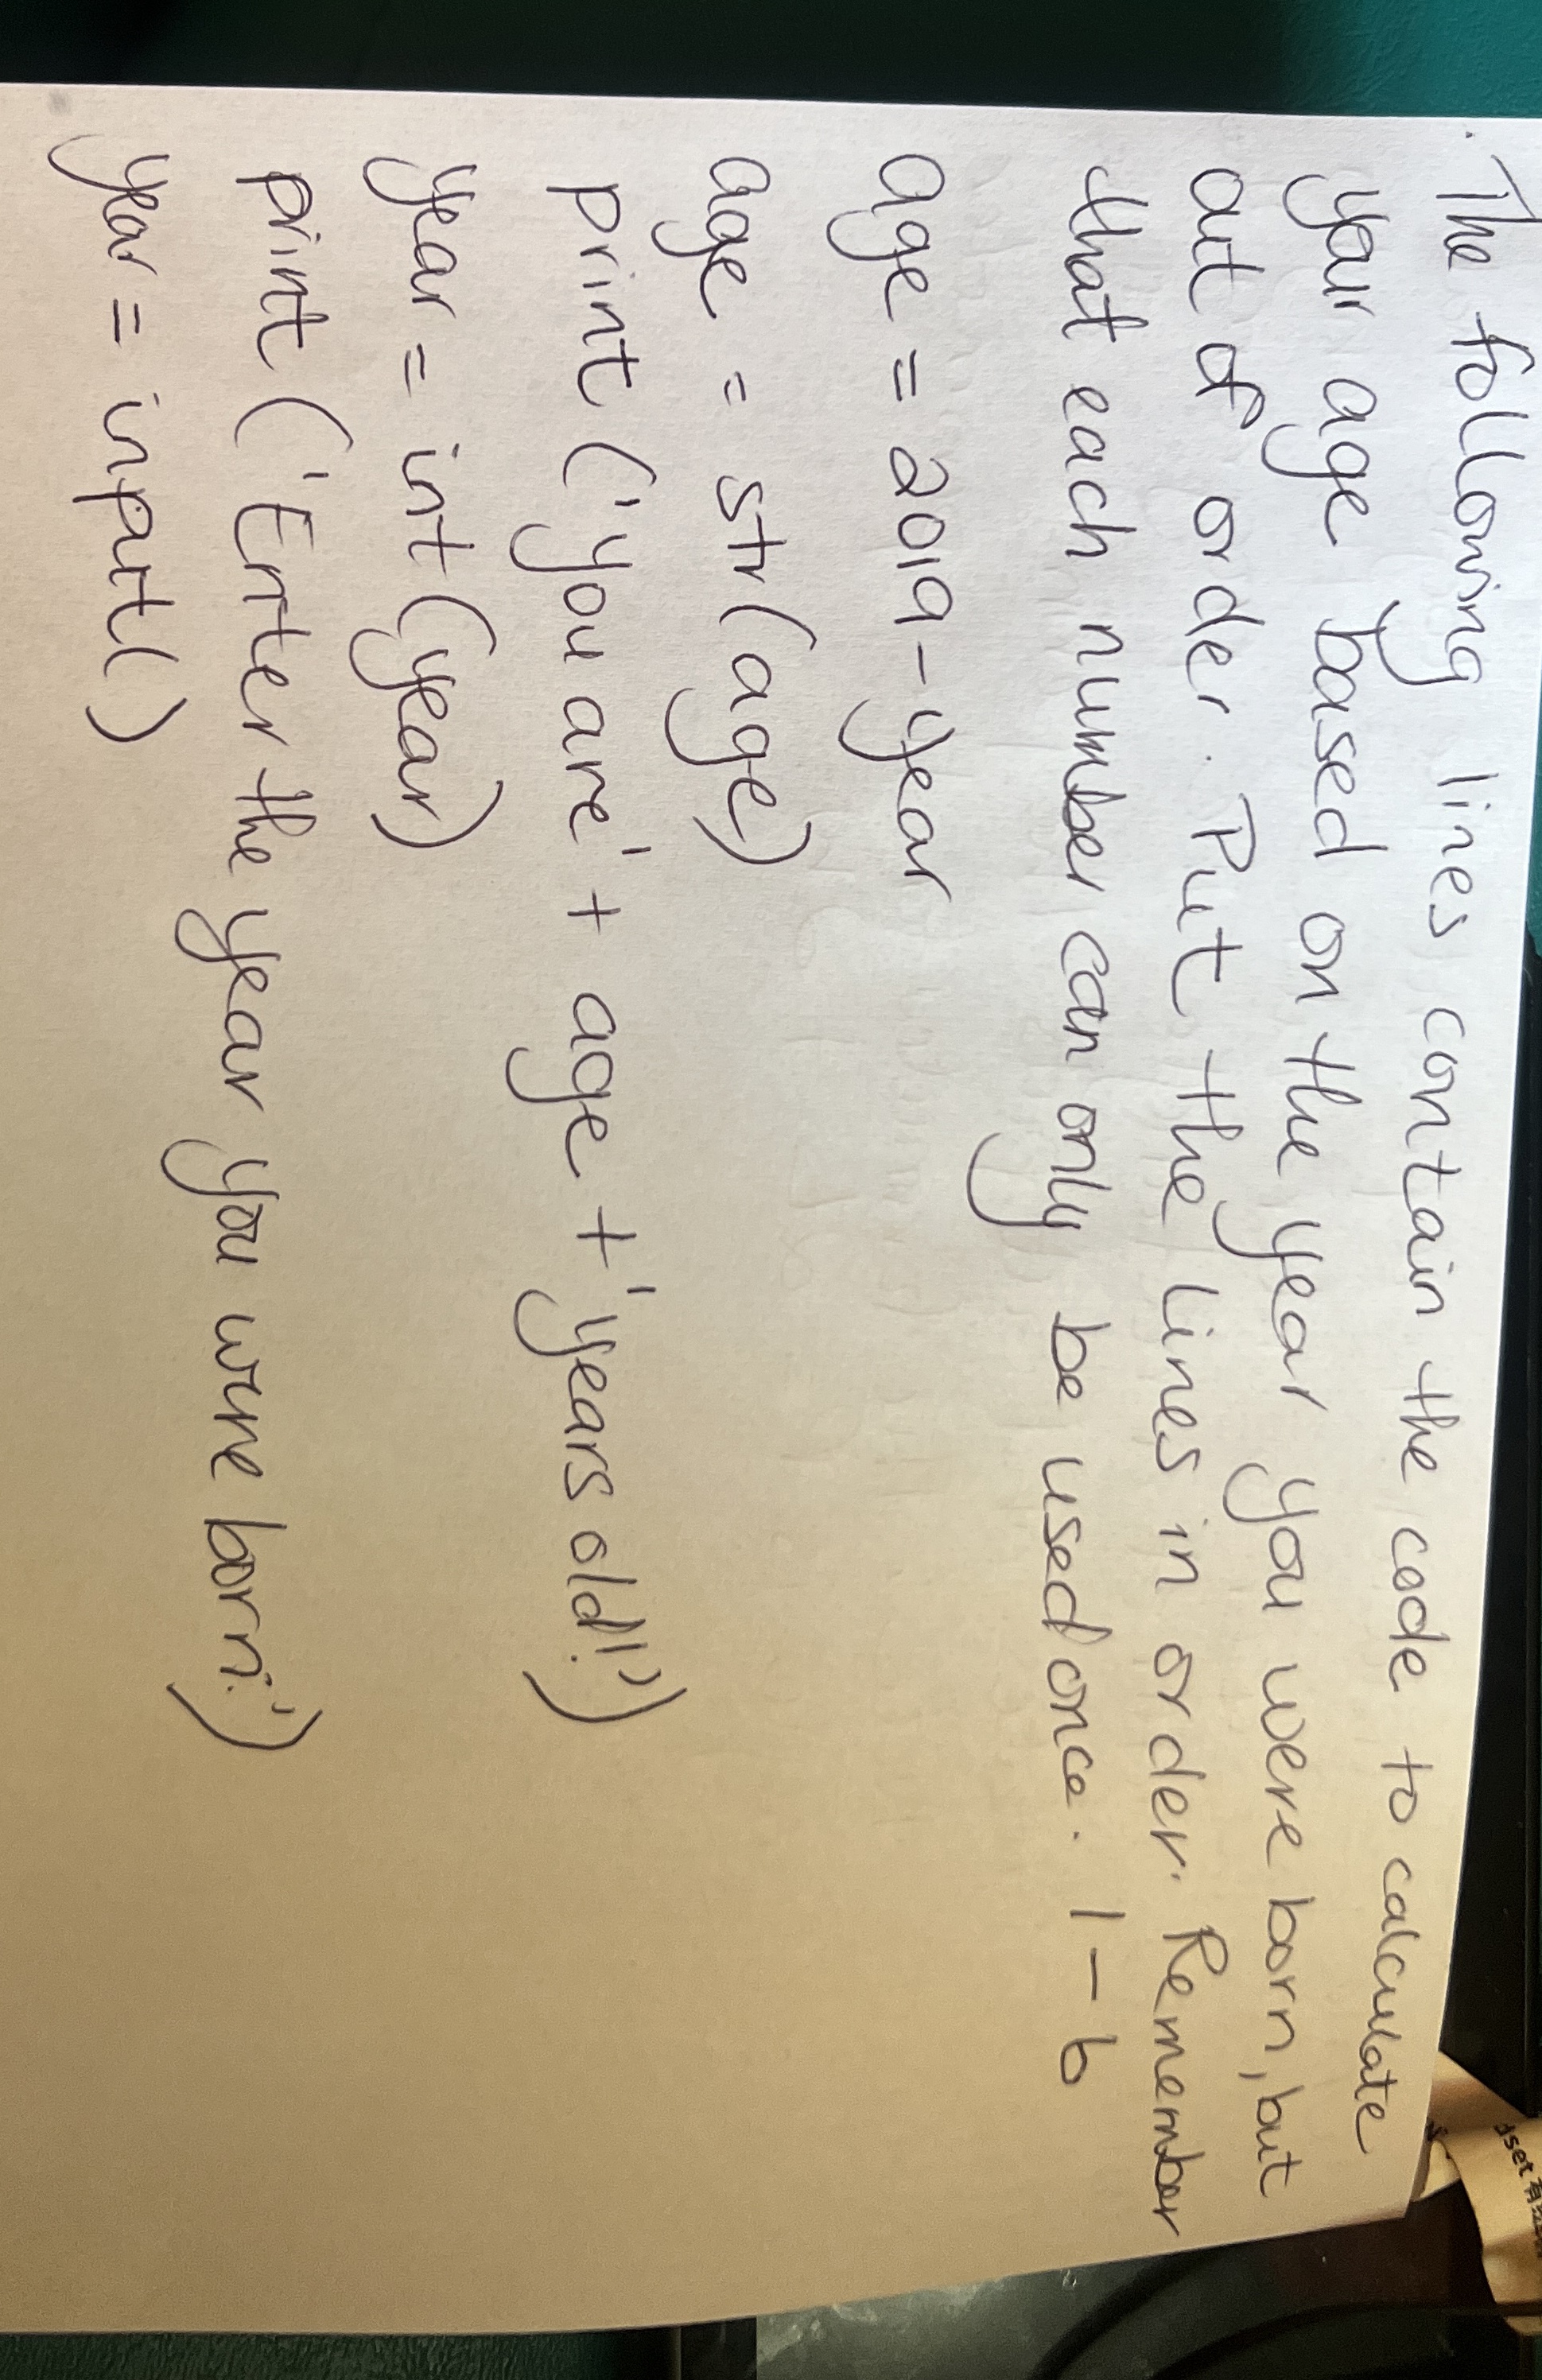 . The following lines contain the code to calculate
your age based on the year you were born, but
out of order. Put the lines in order. Remember
that each number can only be used once. 1-6
age = 2019-year
age = str(age)
print ('you are' + age + 'years old!')
year = int(year)
print ('Enter the year you were born:')
year = input()
set